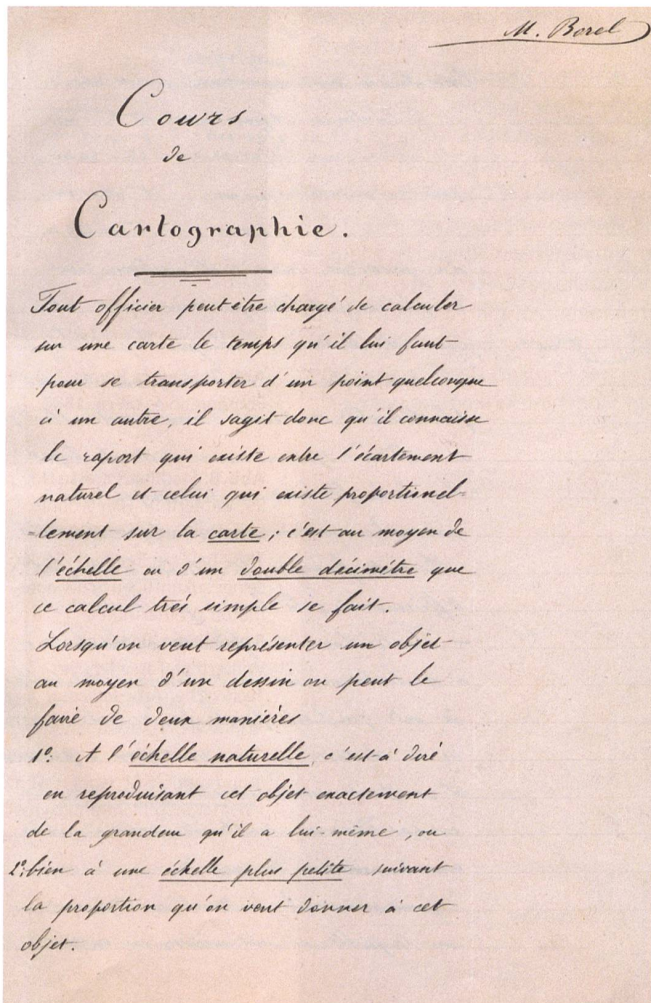 M. Borel
Cours
de
Cartographie.
Tout officier peut être chargé de calculer
sur une carte le temps qu'il lui faut
pour se transporter d'un point quelconque
à un autre, il sagit donc qu'il connaisse
le raport qui existe entre l'écartement
naturel et celui qui existe proportionel-
-lement sur la carte; c'est au moyen de
l'échelle ou d'un double décimètre que
ce calcul trés simple se fait.
Lorsqu'on veut représenter un objet
au moyen d'un dessin on peut le
faire de deux manières
1º: A l'échelle naturelle, c'est-à-dire
en reproduisant cet objet exactement
de la grandeur qu'il a lui-même, ou
2º: bien à une échelle plus petite suivant
la proportion qu'on veut donner à cet
objet.